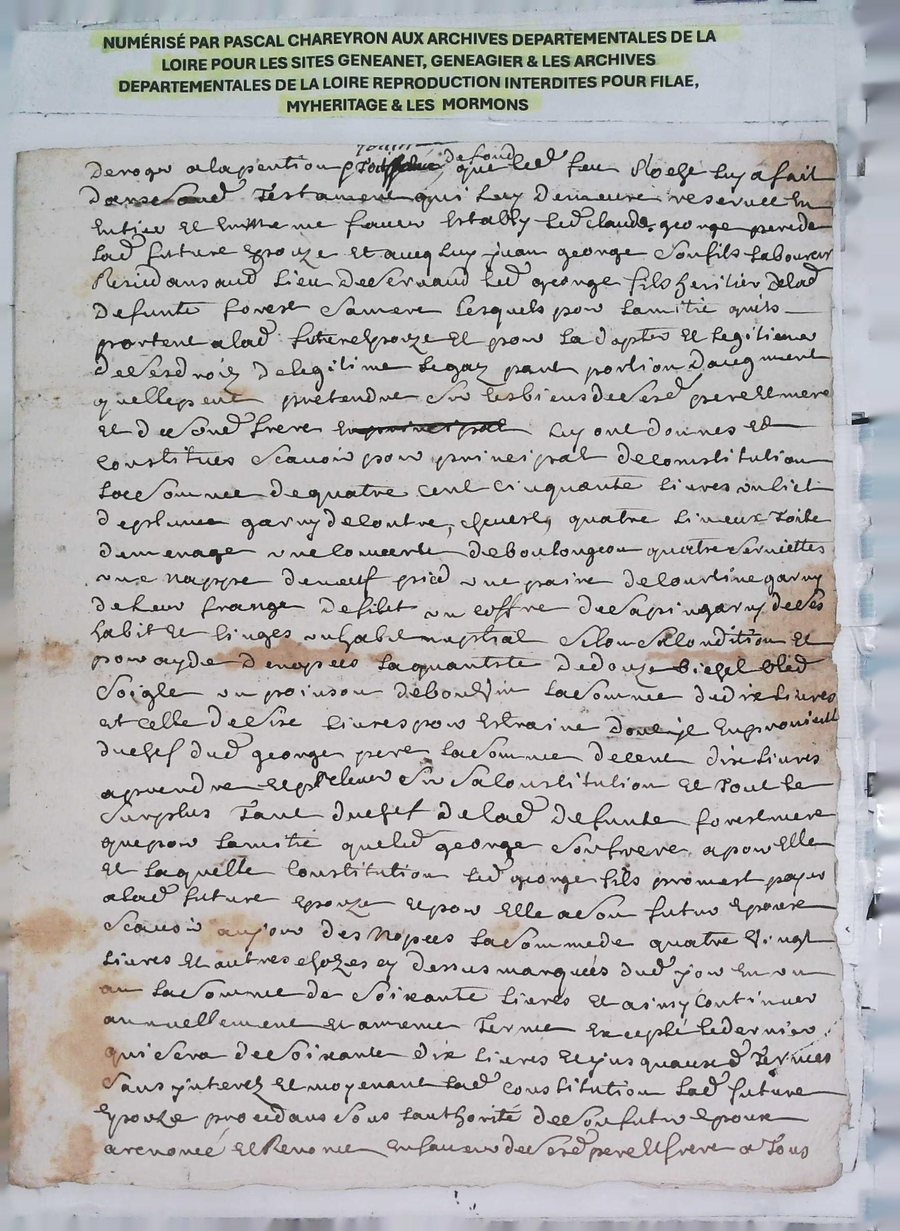 NUMÉRISÉ PAR PASCAL CHAREYRON AUX ARCHIVES DEPARTEMENTALES DE LA
LOIRE POUR LES SITES GENEANET, GENEAGIER & LES ARCHIVES
DEPARTEMENTALES DE LA LOIRE REPRODUCTION INTERDITES POUR FILAE,
MYHERITAGE & LES MORMONS
deroger a la pention que led feu luy a fait
dans Sond Testament qui luy demeure reservee En
Entier Et En meme faveur Estably led claude george pere de
lad future Epouze Et avec luy jean george Son fils laboureur
Residans aud lieu de led george fils heritier de lad
defunte forest Sa mere lesquels pour lamitie quils
portent a lad future Epouze Et pour la et legitime
de Ses droitz de legitime legaz part portion daugment
quelle peut pretendre Sur les biens de Sesd pere Et mere
Et de Sond frere En principal luy ont donnes Et
Constitues Scavoir pour principal de constitution
la Somme de quatre cent cinquante livres un lict
de plume garny de coutre, chevest, quatre linceux Toile
de menage une couverte de boulongeon quatre Serviettes
une nappe de neuf pied une paire de courtine garny
de leur frange de filet un coffre de Sapin garny de Ses
habit Et linges un habit nuptial Selon Sa Condition Et
pour ayde de nopces la quantite de douze bichet bled
Soigle un poinson de bon vin la Somme de dix livres
et celle de Six livres pour Estraine En provient
du chef dud george pere la Somme de cent dix livres
a prendre Et prelever Sur Sa Constitution Et Tout le
Surplus Tant du chef de lad defunte forest mere
que pour lamitie que led george Son frere a pour Elle
Et laquelle Constitution led george fils promest payer
a lad future Epouze Et pour Elle a Son futur Epoux
Scavoir au jour des Nopces la Somme de quatre Vingt
livres Et autres chozes cy dessus marquées dud jour En un
an la Somme de Soixante livres Et ainsy Continuer
annuellement Et a meme Terme Excepté le dernier
qui Sera de Soixante dix livres Et jusquausd Termes
Sans jnterest Et moyenant lad Constitution lad future
Epouze procedans Sous lauthorité de Son futur Epoux
a renoncé Et Renonce En faveur de Sesd pere Et frere a Tous